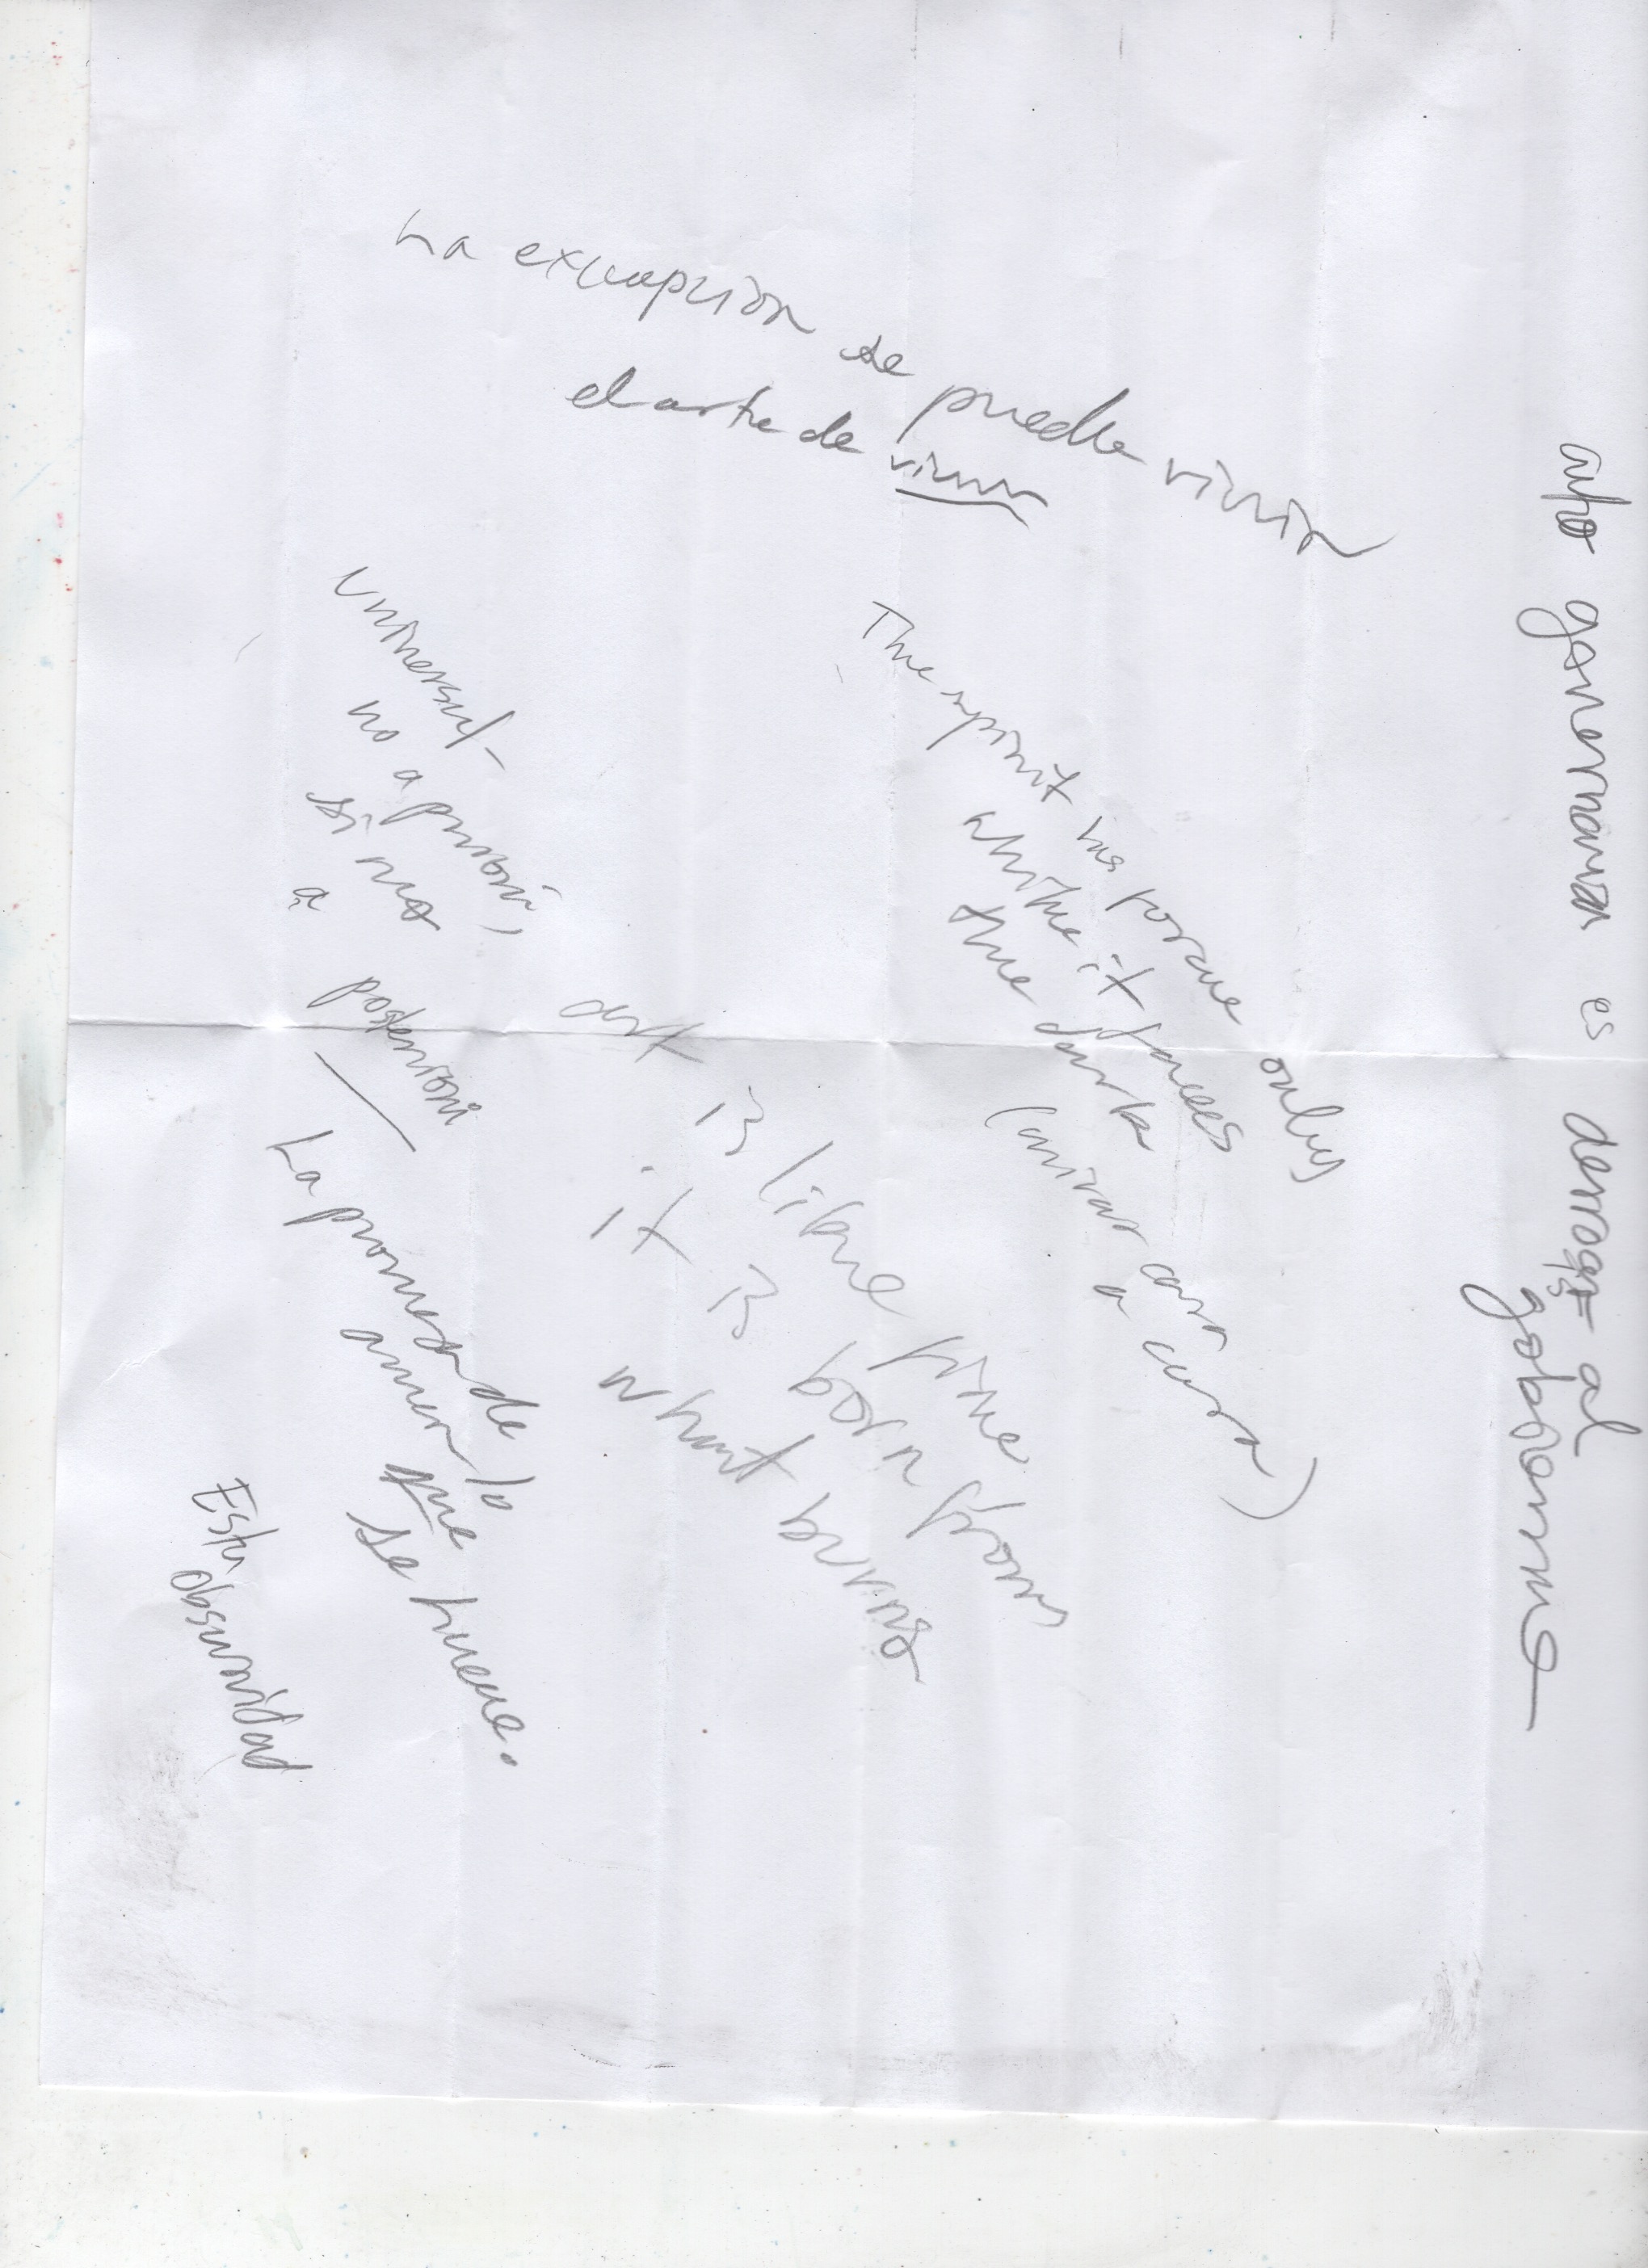 La excepción se puede vivir
el arte de vivir
auto governanza es derrogar al
gobierno
The spirit has force only
while it faces
the dark
(mirar cara
a cara)
Universal-
no a priori,
si no
a
posteriori
art is like fire
it is born from
what burns
La promesa de lo
amer que
se huece.
Esta
obscuridad